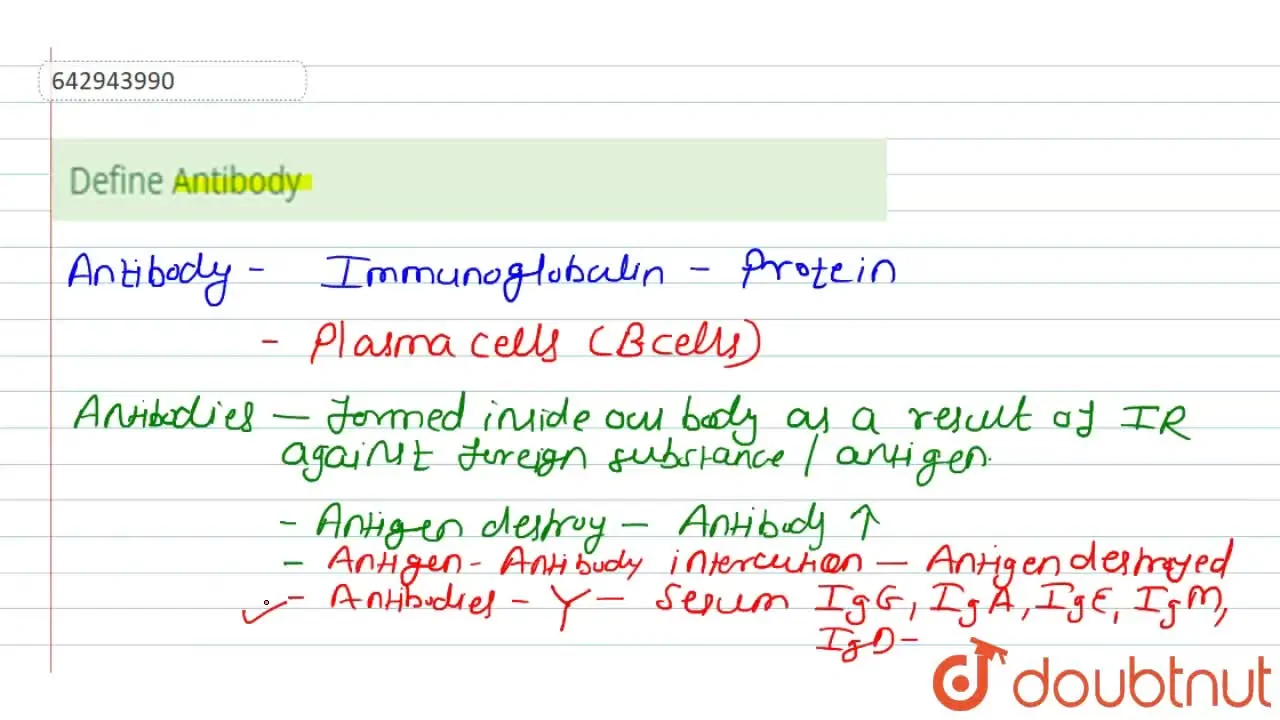 642943990
Define Antibody
Antibody - Immunoglobulin - Protein
- Plasma cells (B cells)
Antibodies — formed inside our body as a result of IR
against foreign substance / antigen.
- Antigen destroy — Antibody ↑
- Antigen - Antibody intercution — Antigen destroyed
✓ - Antibodies - Y - Serum IgG, IgA, IgE, IgM,
IgD -
doubtnut